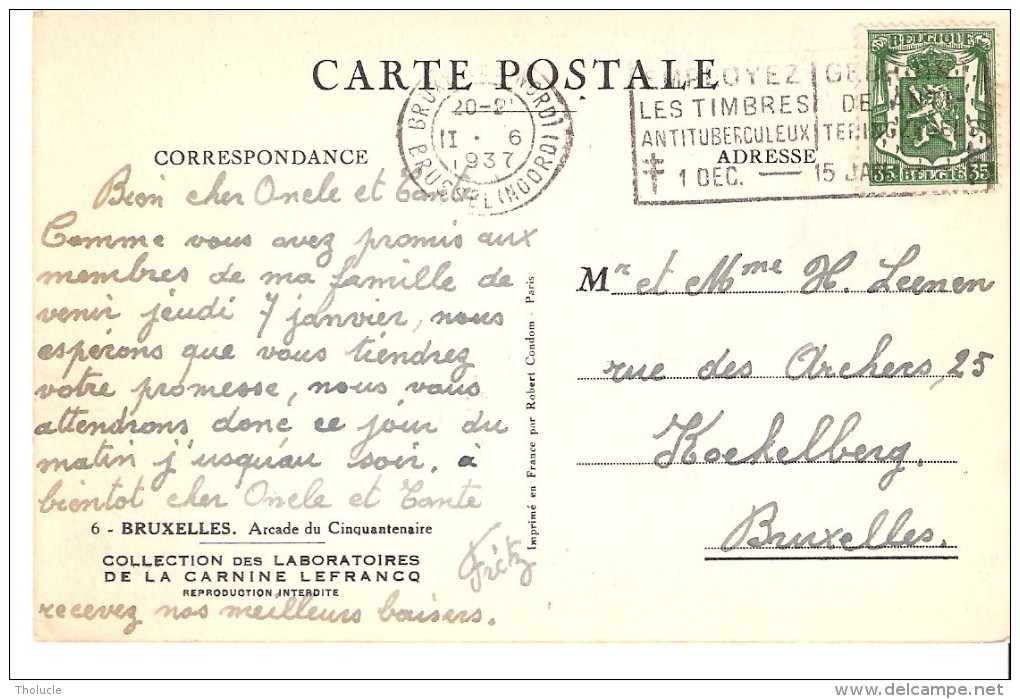 CARTE POSTALE
BELGIQUE
35 BELGIË 35
20-2
II · 6
1937
BRUSSEL (NOORD)
EMPLOYEZ
LES TIMBRES
ANTITUBERCULEUX
1 DEC. — 15 JAN
CORRESPONDANCE
ADRESSE
Bien cher Oncle et Tante
Comme vous avez promis aux
membres de ma famille de
venir jeudi 7 janvier, nous
espérons que vous tiendrez
votre promesse, nous vous
attendrons donc ce jour du
matin j'usquau soir. à
bientot cher Oncle et Tante
6 - BRUXELLES. Arcade du Cinquantenaire
COLLECTION DES LABORATOIRES
DE LA CARNINE LEFRANCQ
REPRODUCTION INTERDITE
recevez nos meilleurs baisers.
Imprimé en France par Robert Condom - Paris
Mr et Mme H. Leenen
rue des Archers, 25
Koekelberg.
Bruxelles.
Tholucle
www.delcampe.net